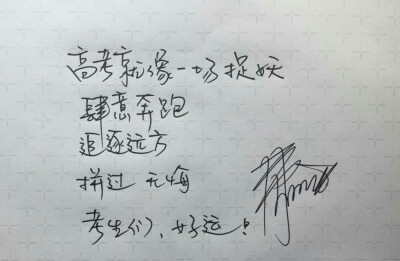 高考就像一场捉妖
肆意奔跑
追逐远方
拼过 无悔
考生们、好运！